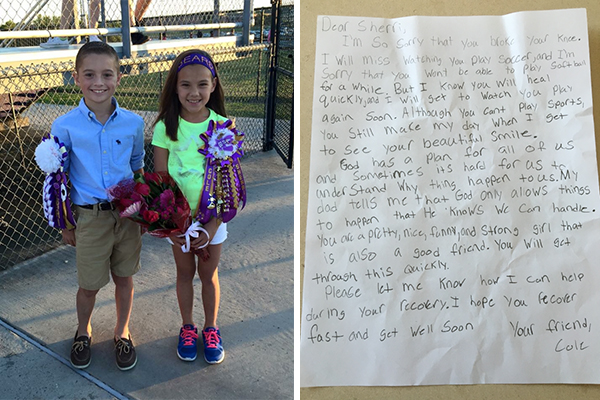 BEARD
Dear Sherri,
I'm So Sorry that you broke your Knee.
I will miss watching you play soccer, and I'm
Sorry that you won't be able to play softball
for a while. But I know you will heal
quickly, and I will get to watch you play
again soon. Although you can't play sports,
you still make my day when I get
to see your beautiful smile.
God has a plan for all of us
and sometimes its hard for us to
understand why thing happen to us. My
dad tells me that God only allows things
to happen that He knows we can handle.
You are a pretty, nice, funny, and strong girl that
is also a good friend. You will get
through this quickly.
Please let me know how I can help
during your recovery. I hope you recover
fast and get well soon Your friend,
Cole